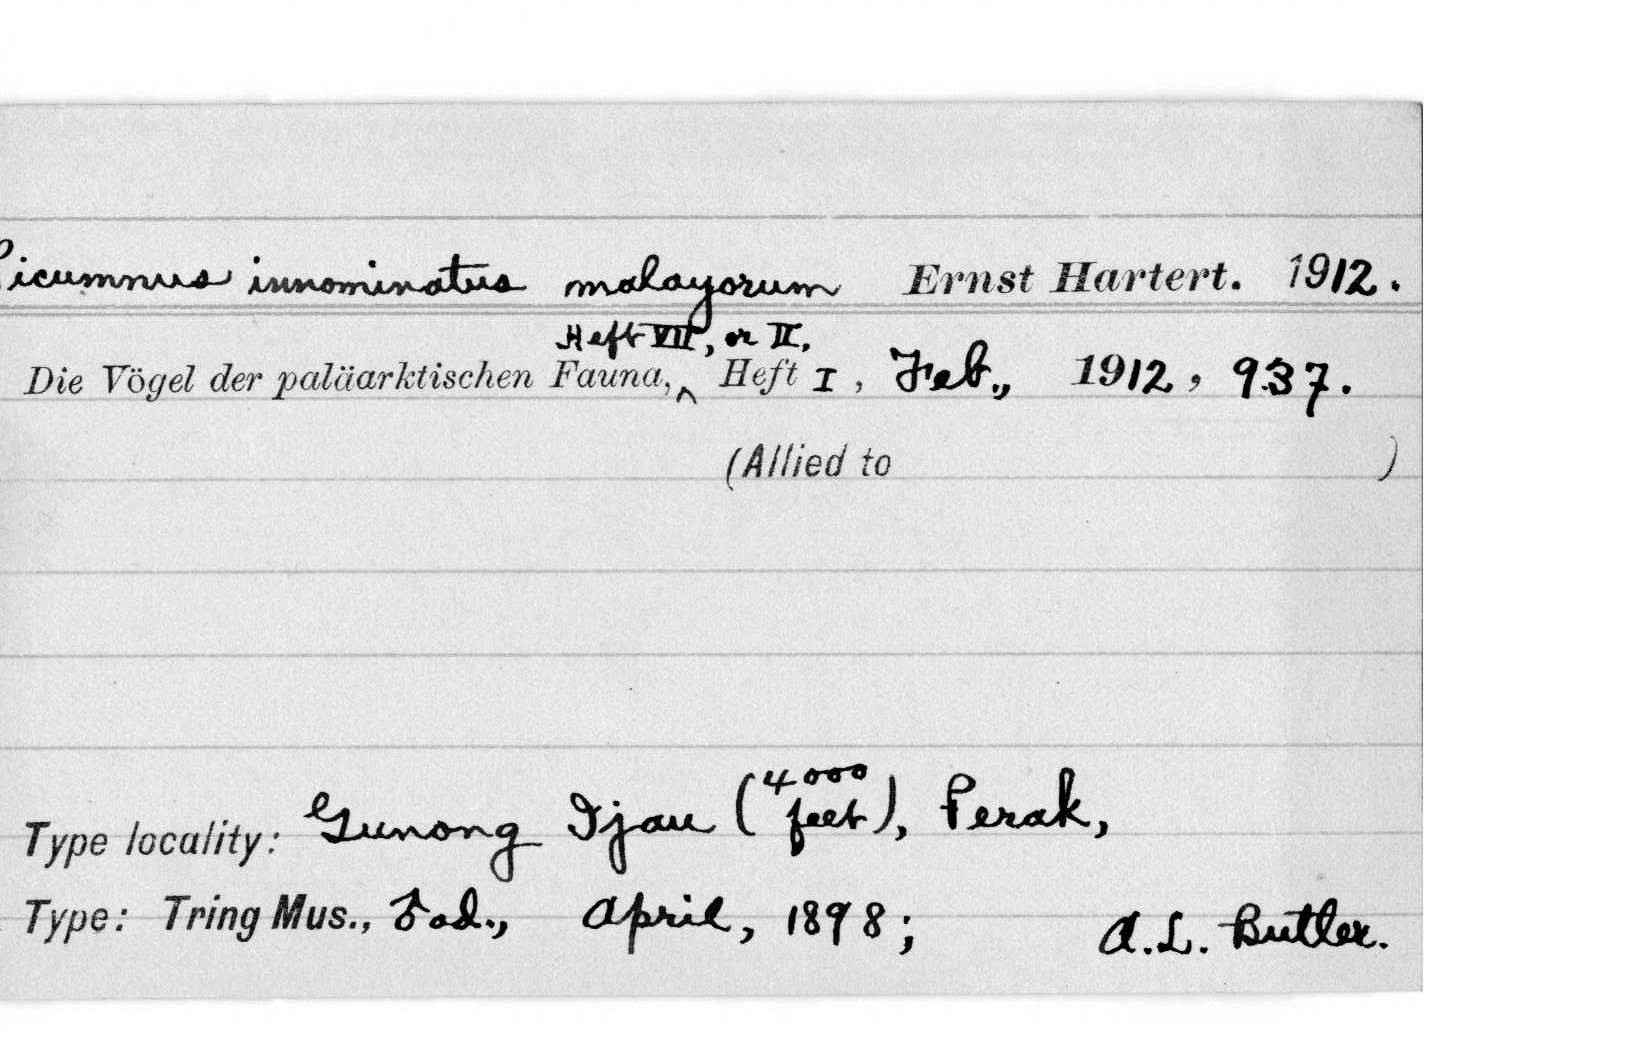 Picumnus innominatus malayorum Ernst Hartert. 1912.
Heft VII, or II,
Die Vögel der paläarktischen Fauna,^ Heft I, Feb., 1912, 937.
(Allied to )
Type locality: Gunong Ijau (4000 feet), Perak,
Type: Tring Mus., ♂ ad., April, 1898; A.L. Butler.